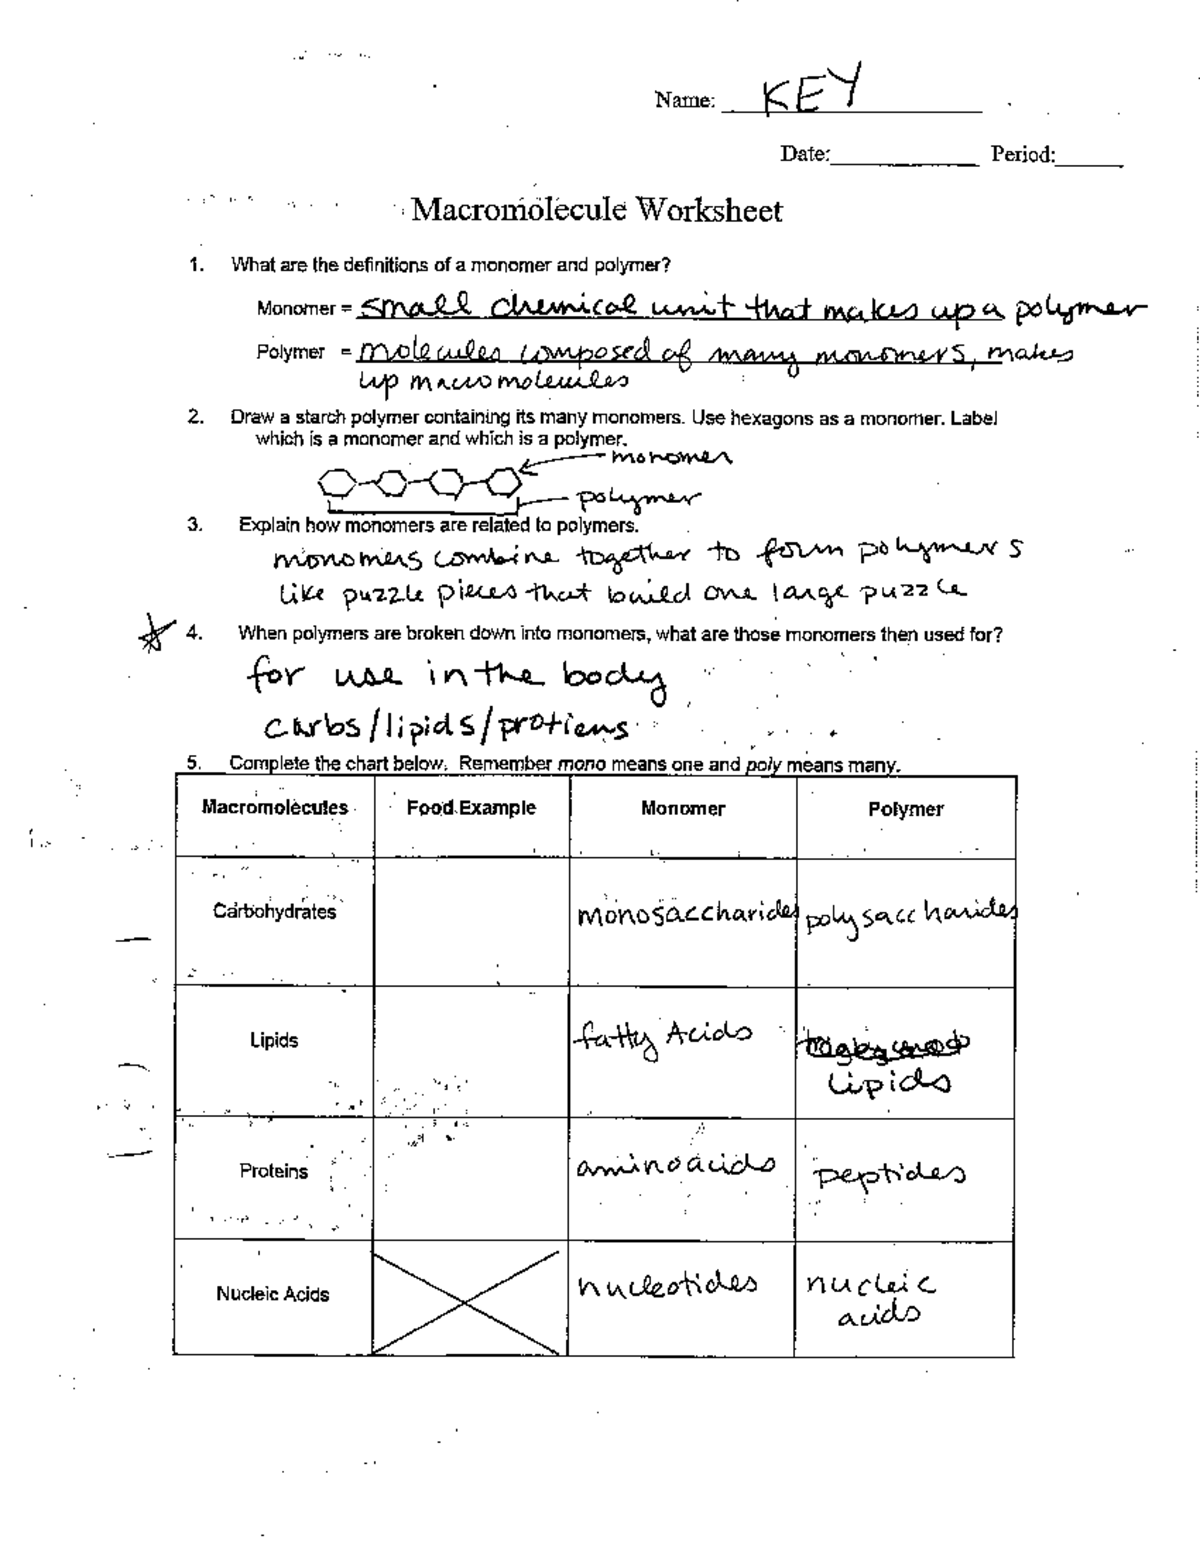 Name: KEY
Date:____________ Period:______
Macromolecule Worksheet
1. What are the definitions of a monomer and polymer?
Monomer = small chemical unit that makes up a polymer
Polymer = molecules composed of many monomers, makes
up macromolecules
2. Draw a starch polymer containing its many monomers. Use hexagons as a monomer. Label
which is a monomer and which is a polymer.
monomer
polymer
3. Explain how monomers are related to polymers.
monomers combine together to form polymers
like puzzle pieces that build one large puzzle
4. When polymers are broken down into monomers, what are those monomers then used for?
for use in the body
carbs/lipids/protiens
5. Complete the chart below. Remember mono means one and poly means many.
Macromolecules Food Example Monomer Polymer
Carbohydrates monosaccharides polysaccharides
Lipids fatty Acids
lipids
Proteins aminoacids peptides
Nucleic Acids nucleotides nucleic
acids